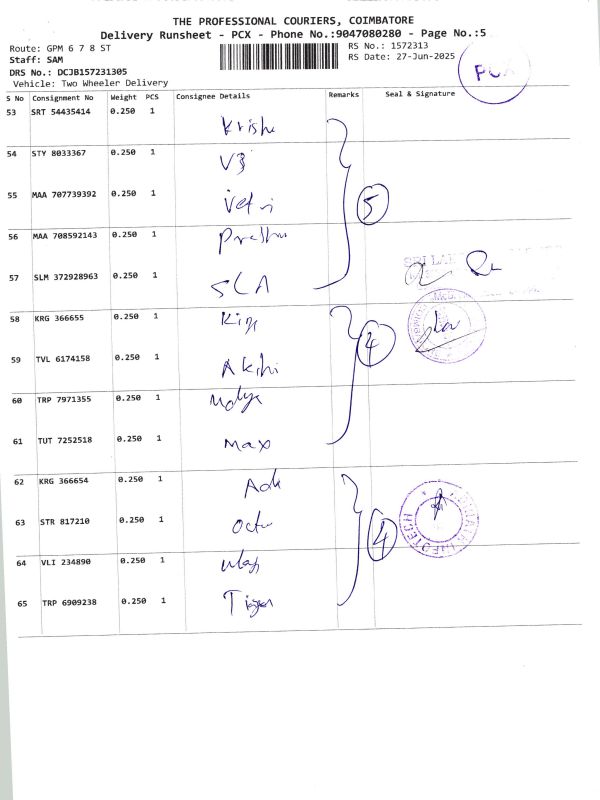 THE PROFESSIONAL COURIERS, COIMBATORE
Delivery Runsheet - PCX - Phone No.:9047080280 - Page No.:5
Route: GPM 6 7 8 ST
RS No.: 1572313
Staff: SAM
RS Date: 27-Jun-2025
DRS No.: DCJB157231305
PCX
Vehicle: Two Wheeler Delivery
S No Consignment No Weight PCS Consignee Details Remarks Seal & Signature
53 SRT 54435414 0.250 1 Krishe
54 STY 8033367 0.250 1 V3
55 MAA 707739392 0.250 1 5
56 MAA 708592143 0.250 1
57 SLM 372928963 0.250 1 SLA
58 KRG 366655 0.250 1 4
59 TVL 6174158 0.250 1
60 TRP 7971355 0.250 1
61 TUT 7252518 0.250 1 Max
62 KRG 366654 0.250 1
63 STR 817210 0.250 1 4 INFOTECH
64 VLI 234890 0.250 1
65 TRP 6909238 0.250 1 Tiger